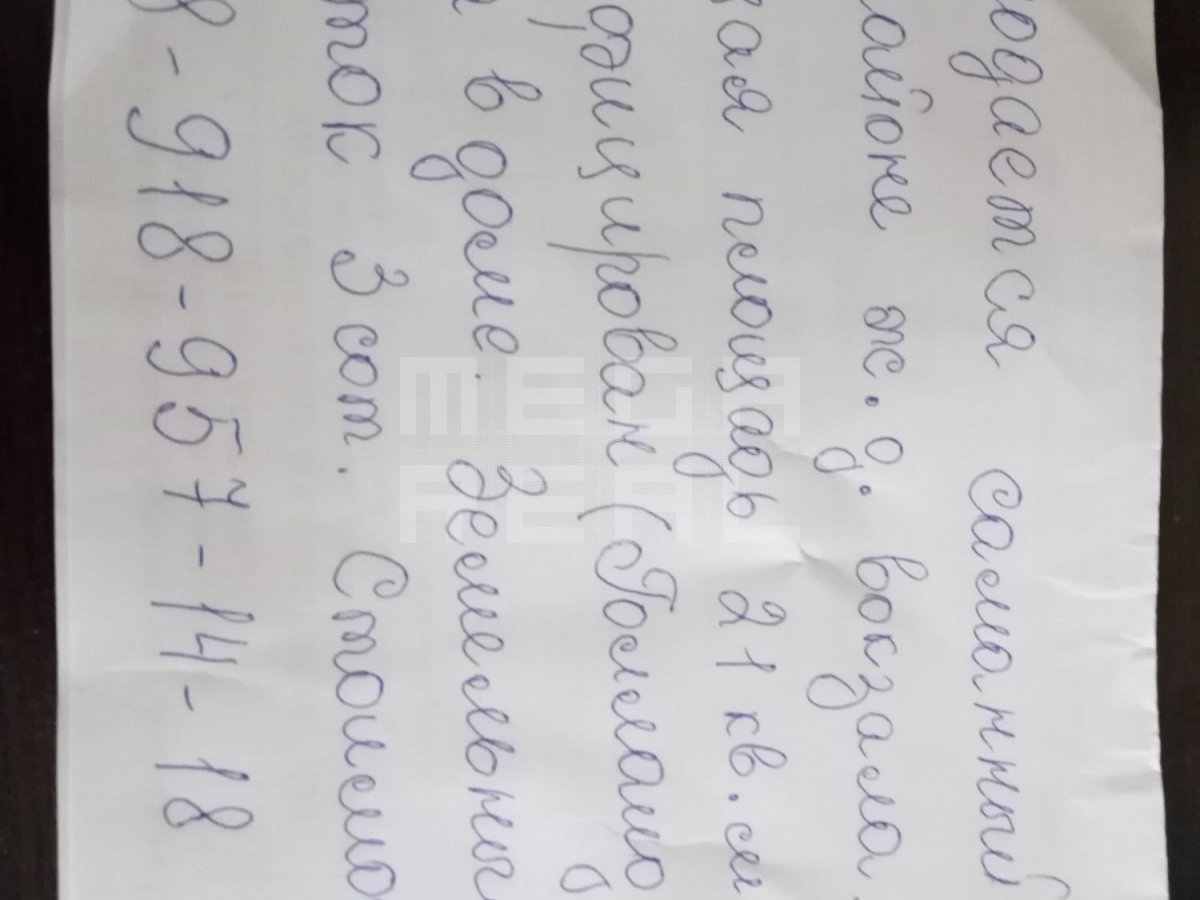 одается саманный
айоне ж.д. вокзала.
щая площадь 21 кв.м
в доме. Земельны
ток 3 сот. Стоимо
8-918-957-14-18
MEGA
REAL